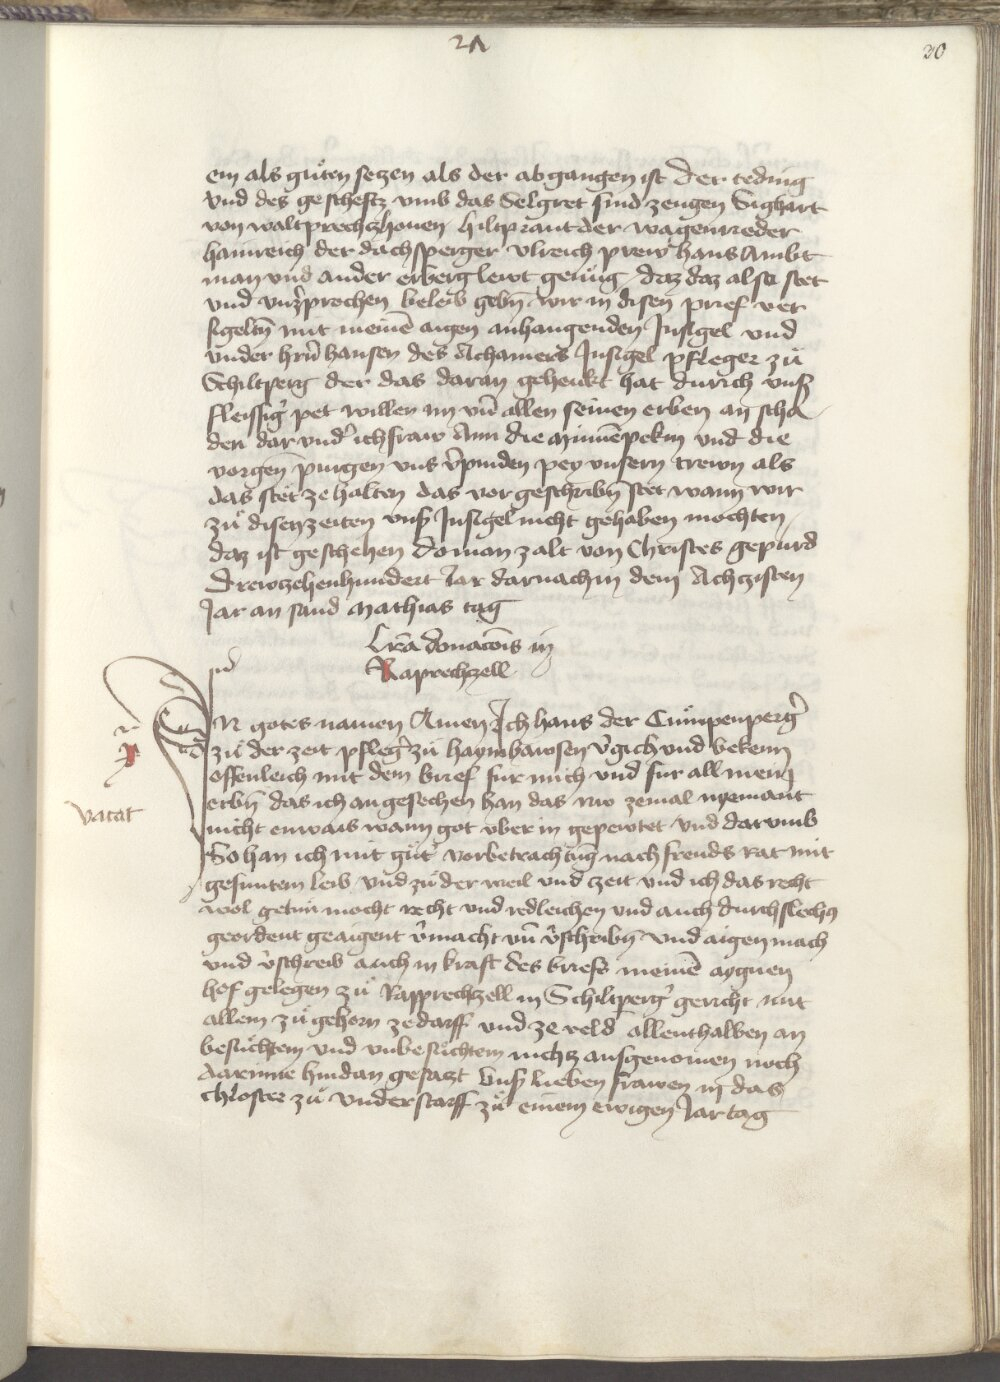 21
30
ein als guͦten seczen als der abgangen ist der teding
vnd des gescheftz vmb das Selgret sind zeugen Sighart
von waltprechczhouen hiltprant der wagenrieder
hainreich der dachsperger vlreich prew hans Ambt
man vnd ander erberg lewt genuͦg daz daz also stet
vnd vnzprochen beleib gebn̄ wir in disen prief ver
sigeltn̄ mit meinē aigen anhangenden Insigel vnd
vnder hrn̄ hansen des Achamers Insigel pfleger zuͦ
Schiltperg der das daran gehenkt hat durich vnsͤ
fleissigͤ pet willen im vn̄ allen seinen erben an scha
den dar vndͤ ich fraw Ann die
vorgen̄ purgen vns v̓pinden pey vnsern trewn als
das stet ze halten das vor geschribn̄ stet wann wir
zuͦ disen zeiten vnsͤ Insigel nicht gehaben mochten
daz ist geschehen do man zalt von Christes gepurd
Drewzehenhundert Iar darnach in dem Achczisten
Iar an sand Mathias tag
Lr̄a donacōis in
Raprechzell
IN gotes namen Amen Ich hans der Cuͦmpenpergͤ
zuͦ der zeit pflegͤ zuͦ haymhawsen v̓gich vnd bekenn
offenleich mit dem brief fur mich vnd fur all mein
erbn̄ das ich angesechen han das nw zemal nyemant
vacat
nicht enwais wann got vber in gepewtet vnd darvmb
So han ich mit guͦtͤ vorbetrachtūg nach frends rat mit
gesuntem leib vnd zuͦ der weil vnd zeit vnd ich das recht
wol getuͦn mocht recht vnd redleichen vnd auch durchslechcz
geordent geaigent v̓macht vn̄ v̓schribn̄ vnd aigen mach
vnd v̓schreib auch in kraft des briefs meinē aygnen
hof gelegen zuͦ Rapprechzell in Schiltpergͤ gericht mit
allem zuͦgehorn ze darff vnd ze veld allenthalben an
besuͦchtem vnd vnbesuͦchtem nichs ausgenomen noch
darinne hindan gesaczt vnsͤ lieben frawen in das
chloster zuͦ vnderstorff zuͦ einem ewigen Iartag